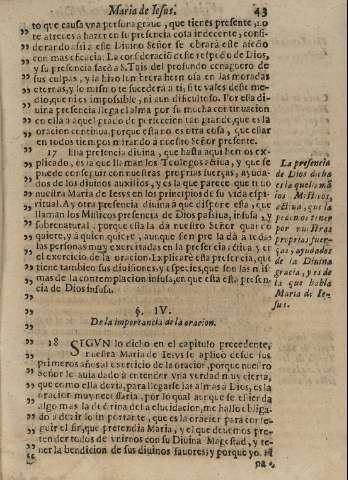 Maria de Iesus. 43
to que causa vna persona graue, que tienes presente, no
te atreues à hazer en su presencia cosa indecente, consi-
derando assi a este Diuino Señor se obrará este afecto
con mas eficacia. La consideracion esse respecto de Dios,
y su presencia sacò à S. Tais del profundo cenaguero de
sus culpas, y la hizo lumbrera hermosa en las moradas
eternas, y lo mismo te sucederà a ti, si te vales deste me-
dio, que ni es impossible, ni aun dificultoso. Por esta di-
uina presencia llega el alma por su mucha continuacion
en ella a aquel grado de perfeccion tan grande, que es la
oracion continua, porque esta no es otra cosa, que estar
en todos tiempos mirando à nuestro Señor presente.
17 Esta presencia diuina, que hasta aqui hemos ex-
plicado, es la que llaman los Teologos actiua, y que se
puede conseguir con nuestras proprias fuerças, ayuda-
dos de los diuinos auxilios, y es la que parece que tuuo
nuestra Maria de Iesvs en los principios de su vida espi-
ritual. Ay otra presencia diuina à que dispone esta, que
llaman los Misticos presencia de Dios passiua, infusa, y
sobrenatural, porque esta la dà nuestro Señor quando
quiere, y à quien quiere, aunque siempre la dà a todas
las personas muy exercitadas en la presencia actiua, y en
el exercicio de la oracion. Explicarè esta presencia, que
tiene tambien sus diuisiones, y especies, que son las mis-
mas de la contemplacion infusa, en que està esta presen-
cia de Dios infusa.
La presencia
de Dios dicha
es la que llamã
los Misticos,
actiua, que la
podemos tener
por nuestras
proprias fuer-
ças, ayudados
de la Diuina
gracia, y es de
la que habla
Maria de Ie-
sus.
§. IV.
De la importancia de la oracion.
18 SEGVN lo dicho en el capitulo precedente,
nuestra Maria de Iesvs se aplicò desde sus
primeros años al exercicio de la oracion, porque nuestro
Señor le auia dado à entender vna verdad muy cierta,
que como ella dezia, para llegarse las almas à Dios, es la
oracion muy necessaria, por lo qual aunque se el orden
algo mas la doctrina de la elucidacion, me hallo obliga-
do à dezir lo importante, que es la oracion para conse-
guir el fin, que pretendia Maria, y el que deuemos pre-
tender todos de vnirnos con su Diuina Magestad, y te-
ner la bendicion de sus diuinos fauores; y porque yo
pa-